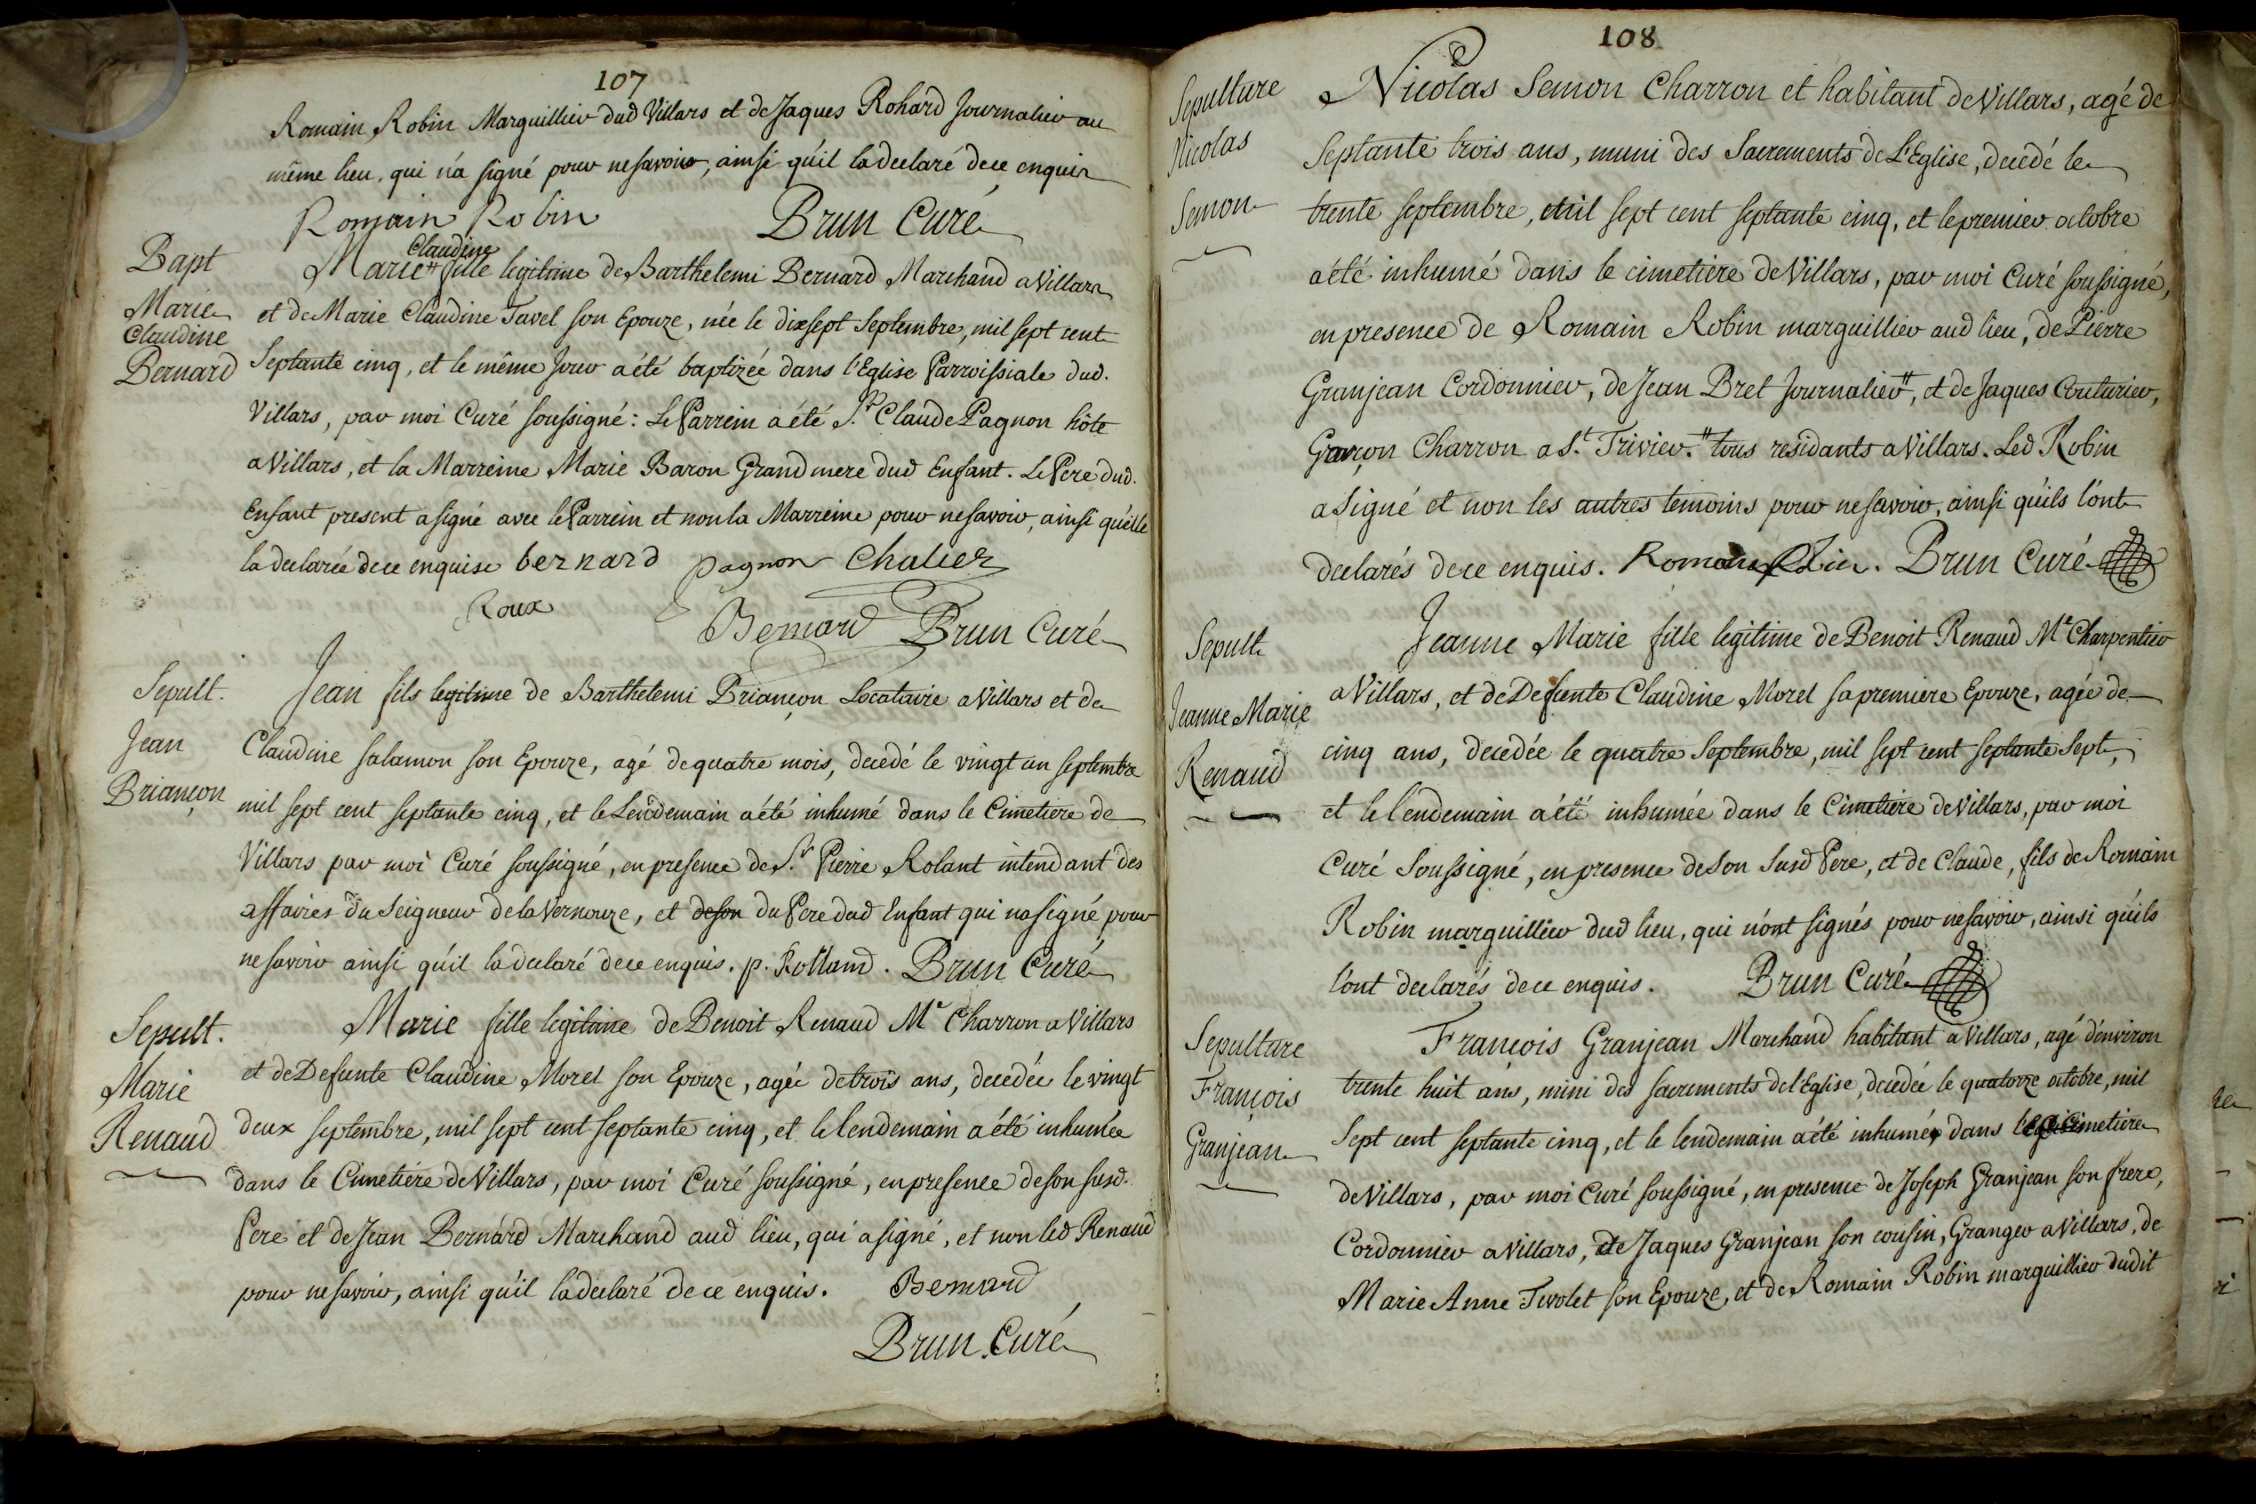 107
Romain Robin Marguillier dud Villars et de Jaques Rohard Journalier au
même lieu, qui n'a signé pour ne savoir, ainsi qu'il la declaré de ce enquis
Romain Robin Brun Curé
Bapt
Marie
Claudine
Bernard
Claudine
Marie # fille legitime de Barthelemi Bernard Marchand a Villars
et de Marie Claudine Tavel son Epouze, née le dixsept Septembre, mil sept cent
Septante cinq, et le même Jour a été baptizée dans l'Eglise Parroissiale dud.
Villars, par moi Curé soussigné: Le Parrein a été Sr. Claude Pagnon hôte
a Villars, et la Marreine Marie Baron Grand mere dud Enfant. Le Pere dud.
Enfant present a signé avec le Parrein et non la Marreine pour ne savoir, ainsi qu'elle
la declarée de ce enquise bernard pagnon Chalier
Roux
Bernard Brun Curé
Sepult.
Jean
Briançon
Jean fils legitime de Barthelemi Briançon Locataire a Villars et de
Claudine Salamon son Epouze, agé de quatre mois, decedé le vingt un septembre
mil sept cent septante cinq, et le Lendemain a été inhumé dans le Cimetiere de
Villars par moi Curé soussigné, en presence de Sr. Pierre Rolant intendant des
affaires du Seigneur de la Vernouze, et de son du Pere dud Enfant qui na signé pour
ne savoir ainsi qu'il la declaré de ce enquis. p. Rolland. Brun Curé
Sepult.
Marie
Renaud
Marie fille legitime de Benoit Renaud Me Charron a Villars
et de Defunte Claudine Morel son Epouze, agée de trois ans, decedée le vingt
deux septembre, mil sept cent septante cinq, et le lendemain a été inhumée
dans le Cimetiere de Villars, par moi Curé soussigné, en presence de son susd.
Pere et de Jean Bernard Marchand aud lieu, qui a signé, et non led Renaud
pour ne savoir, ainsi qu'il la declaré de ce enquis. Bernard
Brun Curé
108
Sepulture
Nicolas
Semon
Nicolas Semon Charron et habitant de Villars, agé de
Septante trois ans, muni des Sacrements de L'Eglise, decedé le
trente septembre, mil sept cent septante cinq, et le premier octobre
a été inhumé dans le cimetiere de Villars, par moi Curé soussigné,
en presence de Romain Robin marguillier aud lieu, de Pierre
Granjean Cordonnier, de Jean Bret Journalier #, et de Jaques Couturier,
Garçon Charron a St. Trivier. # tous residants a Villars. Led Robin
a signé et non les autres temoins pour ne savoir, ainsi qu'ils l'ont
declarés de ce enquis. Romain Robin. Brun Curé
Sepult
Jeanne Marie
Renaud
Jeanne Marie fille legitime de Benoit Renaud Me Charpentier
a Villars, et de Defunte Claudine Morel sa premiere Epouze, agée de
cinq ans, decedée le quatre Septembre, mil sept cent septante Sept,
et le l'endemain a été inhumée dans le Cimetiere de Villars, par moi
Curé Soussigné, en presence de Son Susd Pere, et de Claude, fils de Romain
Robin marguillier dud lieu, qui n'ont signés pour ne savoir, ainsi qu'ils
l'ont declarés de ce enquis. Brun Curé
Sepulture
François
Granjean
François Granjean Marchand habitant a Villars, agé d'environ
trente huit ans, muni des sacrements de l'Eglise, decedée le quatorze octobre, mil
Sept cent septante cinq, et le lendemain a été inhumé dans le cimetiere
de Villars, par moi Curé soussigné, en presence de Joseph Granjean son frere,
Cordonnier a Villars, de Jaques Granjean son cousin, Granger a Villars, de
Marie Anne Tivolet son Epouze, et de Romain Robin marguillier dudit